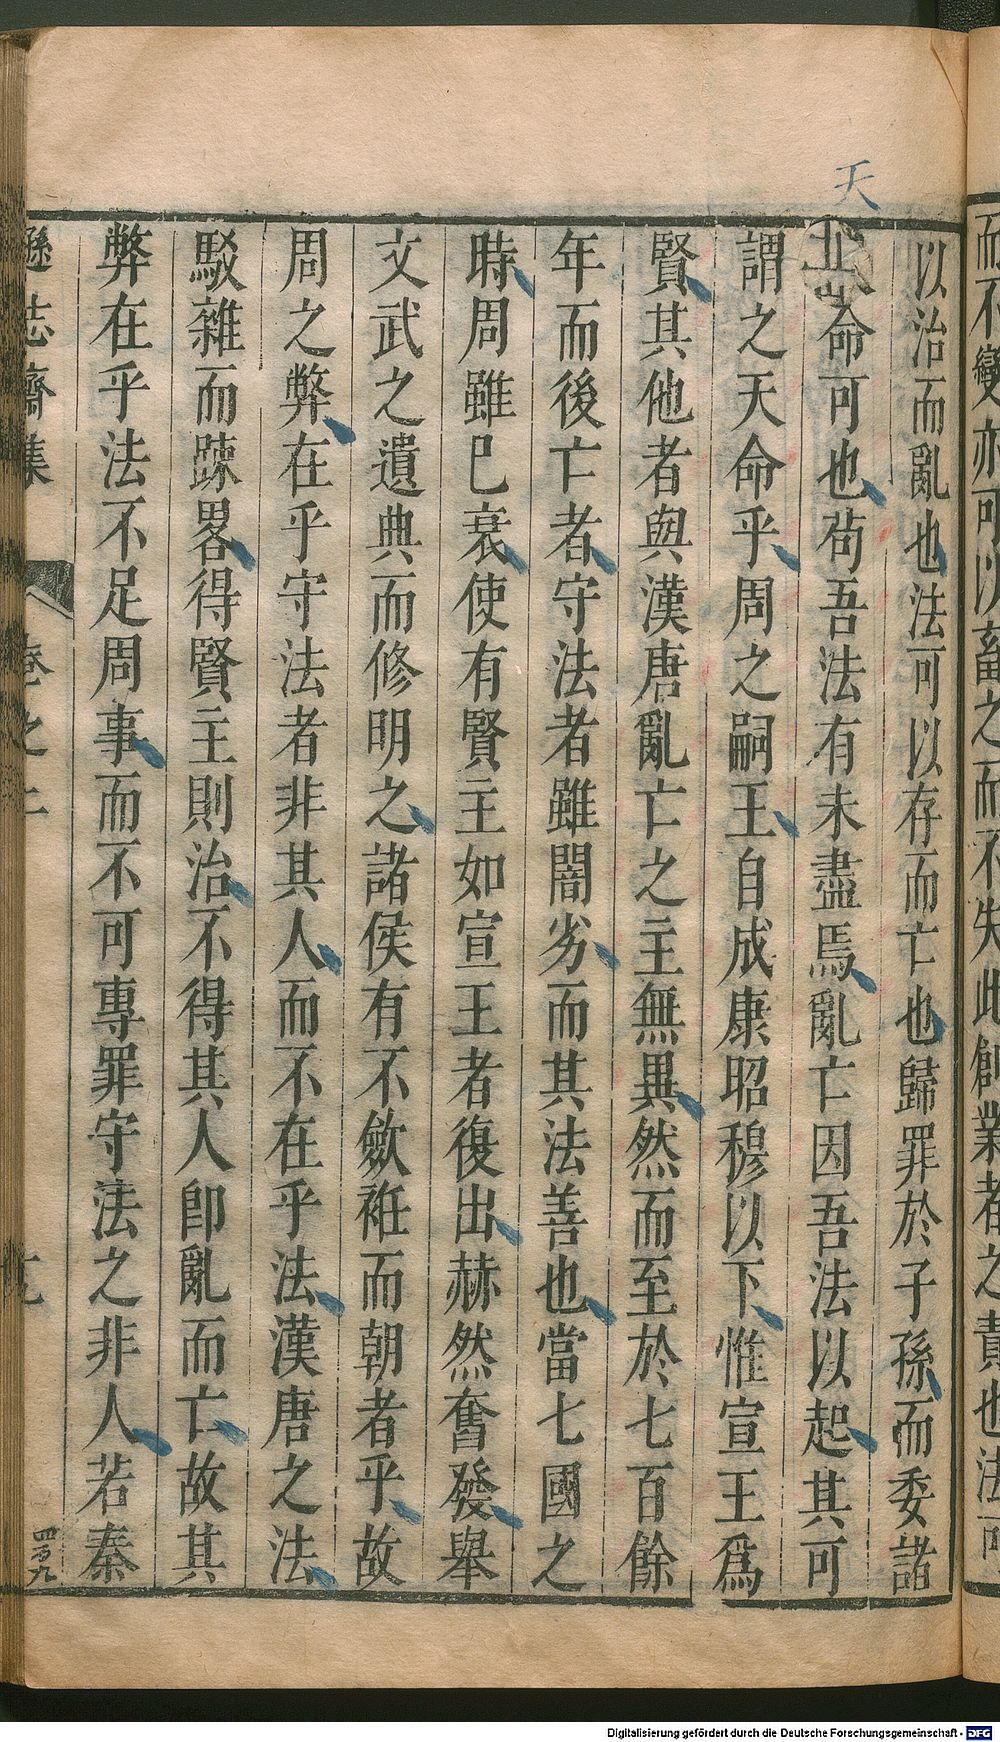 而不變亦可以畜之而不失此創業者之責也法可
天
以治而亂也法可以存而亡也歸罪於子孫而委諸
命可也苟吾法有未盡焉亂亡因吾法以起其可
謂之天命乎周之嗣王自成康昭穆以下惟宣王爲
賢其他者與漢唐亂亡之主無異然而至於七百餘
年而後亡者守法者雖闇劣而其法善也當七國之
時周雖巳衰使有賢主如宣王者復出赫然奮發舉
文武之遺典而修明之諸侯有不歛袵而朝者乎故
周之弊在乎守法者非其人而不在乎法漢唐之法
駁雜而踈畧得賢主則治不得其人卽亂而亡故其
弊在乎法不足周事而不可專罪守法之非人若秦
遜志齋集 卷之二
四百九
Digitalisierung gefördert durch die Deutsche Forschungsgemeinschaft - DFG